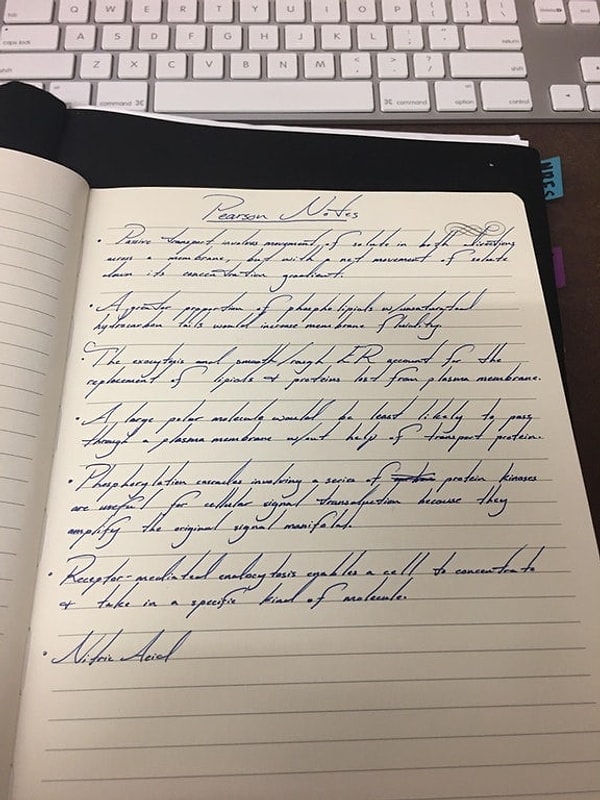 tab Q W E R T Y U I O P { [ } ] delete end
caps lock A S D F G H J K L : ; " ' return
shift Z X C V B N M < , > . ? / shift
command ⌘ ⌘ command option control
NRES
Pearson Notes
• Passive transport involves movement of solute in both directions
across a membrane, but with a net movement of solute
down its concentration gradient.
• A greater proportion of phospholipids w/unsaturated
hydrocarbon tails would increase membrane fluidity.
• The exocytosis and smooth/rough ER account for the
replacement of lipids & proteins lost from plasma membrane.
• A large polar molecule would be least likely to pass
through a plasma membrane w/out help of transport protein.
• Phosphorylation cascades involving a series of protein kinases
are useful for cellular signal transduction because they
amplify the original signal manifold.
• Receptor-mediated endocytosis enables a cell to concentrate
& take in a specific kind of molecule.
• Nitric Acid